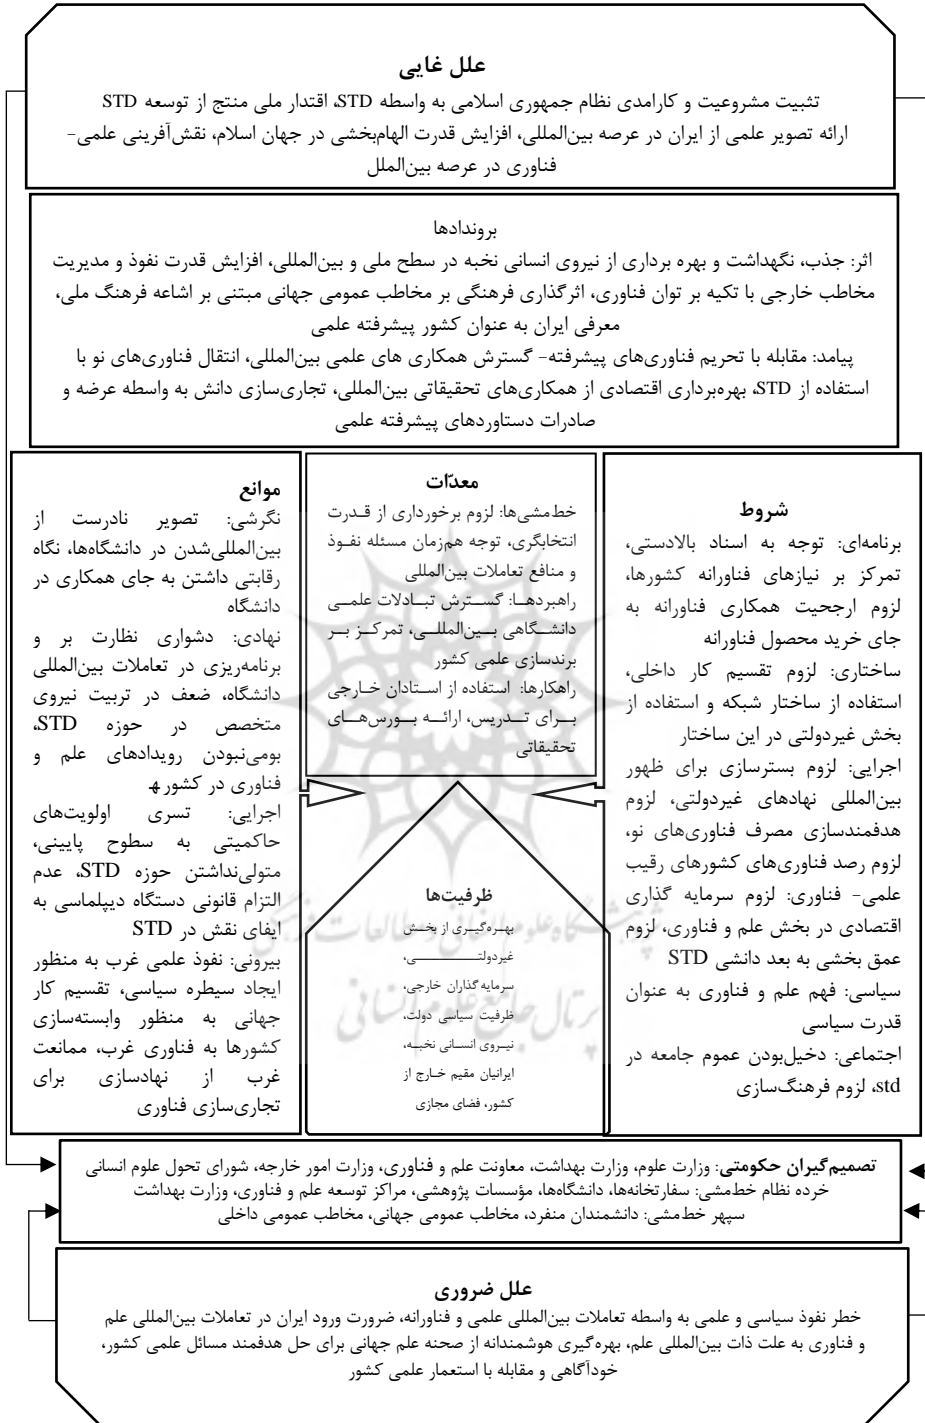 علل غایی
تثبیت مشروعیت و کارامدی نظام جمهوری اسلامی به واسطه STD، اقتدار ملی منتج از توسعه STD
ارائه تصویر علمی از ایران در عرصه بین‌المللی، افزایش قدرت الهام‌بخشی در جهان اسلام، نقش‌آفرینی علمی-
فناوری در عرصه بین‌الملل
بروندادها
اثر: جذب، نگهداشت و بهره برداری از نیروی انسانی نخبه در سطح ملی و بین‌المللی، افزایش قدرت نفوذ و مدیریت
مخاطب خارجی با تکیه بر توان فناوری، اثرگذاری فرهنگی بر مخاطب عمومی جهانی مبتنی بر اشاعه فرهنگ ملی،
معرفی ایران به عنوان کشور پیشرفته علمی
پیامد: مقابله با تحریم فناوری‌های پیشرفته- گسترش همکاری های علمی بین‌المللی، انتقال فناوری‌های نو با
استفاده از STD، بهره‌برداری اقتصادی از همکاری‌های تحقیقاتی بین‌المللی، تجاری‌سازی دانش به واسطه عرضه و
صادرات دستاوردهای پیشرفته علمی
شروط
برنامه‌ای: توجه به اسناد بالادستی،
تمرکز بر نیازهای فناورانه کشورها،
لزوم ارجحیت همکاری فناورانه به
جای خرید محصول فناورانه
ساختاری: لزوم تقسیم کار داخلی،
استفاده از ساختار شبکه و استفاده از
بخش غیردولتی در این ساختار
اجرایی: لزوم بسترسازی برای ظهور
بین‌المللی نهادهای غیردولتی، لزوم
هدفمندسازی مصرف فناوری‌های نو،
لزوم رصد فناوری‌های کشورهای رقیب
علمی- فناوری: لزوم سرمایه گذاری
اقتصادی در بخش علم و فناوری، لزوم
عمق بخشی به بعد دانشی STD
سیاسی: فهم علم و فناوری به عنوان
قدرت سیاسی
اجتماعی: دخیل‌بودن عموم جامعه در
std، لزوم فرهنگ‌سازی
معدّات
خط‌مشی‌ها: لزوم برخورداری از قدرت
انتخابگری، توجه هم‌زمان مسئله نفوذ
و منافع تعاملات بین‌المللی
راهبردها: گسترش تبادلات علمی
دانشگاهی بین‌المللی، تمرکز بر
برندسازی علمی کشور
راهکارها: استفاده از استادان خارجی
برای تدریس، ارائه بورس‌های
تحقیقاتی
ظرفیت‌ها
بهره‌گیری از بخش
غیردولتی،
سرمایه‌گذاران خارجی،
ظرفیت سیاسی دولت،
نیروی انسانی نخبه،
ایرانیان مقیم خارج از
کشور، فضای مجازی
موانع
نگرشی: تصویر نادرست از
بین‌المللی‌شدن در دانشگاه‌ها، نگاه
رقابتی داشتن به جای همکاری در
دانشگاه
نهادی: دشواری نظارت بر و
برنامه‌ریزی در تعاملات بین‌المللی
دانشگاه، ضعف در تربیت نیروی
متخصص در حوزه STD،
بومی‌نبودن رویدادهای علم و
فناوری در کشور ﻫ
اجرایی: تسری اولویت‌های
حاکمیتی به سطوح پایینی،
متولی‌نداشتن حوزه STD، عدم
التزام قانونی دستگاه دیپلماسی به
ایفای نقش در STD
بیرونی: نفوذ علمی غرب به منظور
ایجاد سیطره سیاسی، تقسیم کار
جهانی به منظور وابسته‌سازی
کشورها به فناوری غرب، ممانعت
غرب از نهادسازی برای
تجاری‌سازی فناوری
پژوهشگاه علوم انسانی و مطالعات فرهنگی
پرتال جامع علوم انسانی
تصمیم‌گیران حکومتی: وزارت علوم، وزارت بهداشت، معاونت علم و فناوری، وزارت امور خارجه، شورای تحول علوم انسانی
خرده نظام خط‌مشی: سفارتخانه‌ها، دانشگاه‌ها، مؤسسات پژوهشی، مراکز توسعه علم و فناوری، وزارت بهداشت
سپهر خط‌مشی: دانشمندان منفرد، مخاطب عمومی جهانی، مخاطب عمومی داخلی
علل ضروری
خطر نفوذ سیاسی و علمی به واسطه تعاملات بین‌المللی علمی و فناورانه، ضرورت ورود ایران در تعاملات بین‌المللی علم
و فناوری به علت ذات بین‌المللی علم، بهره‌گیری هوشمندانه از صحنه علم جهانی برای حل هدفمند مسائل علمی کشور،
خودآگاهی و مقابله با استعمار علمی کشور